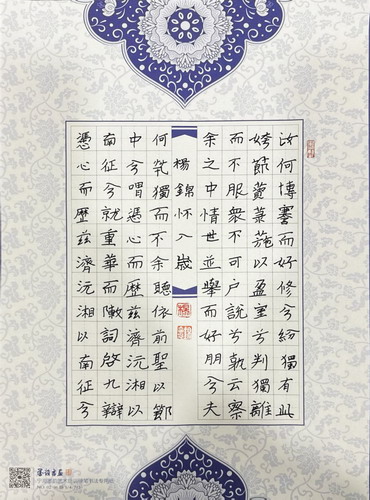 汝何博謇而好修兮紛獨有此
姱節薋菉葹以盈室兮判獨離
而不服衆不可户說兮孰云察
余之中情世並舉而好朋兮夫
楊錦怀八歲
何煢獨而不余聽依前聖以節
中兮喟憑心而歷兹濟沅湘以
南征兮就重華而敶詞啓九辯
憑心而歷兹濟沅湘以南征兮